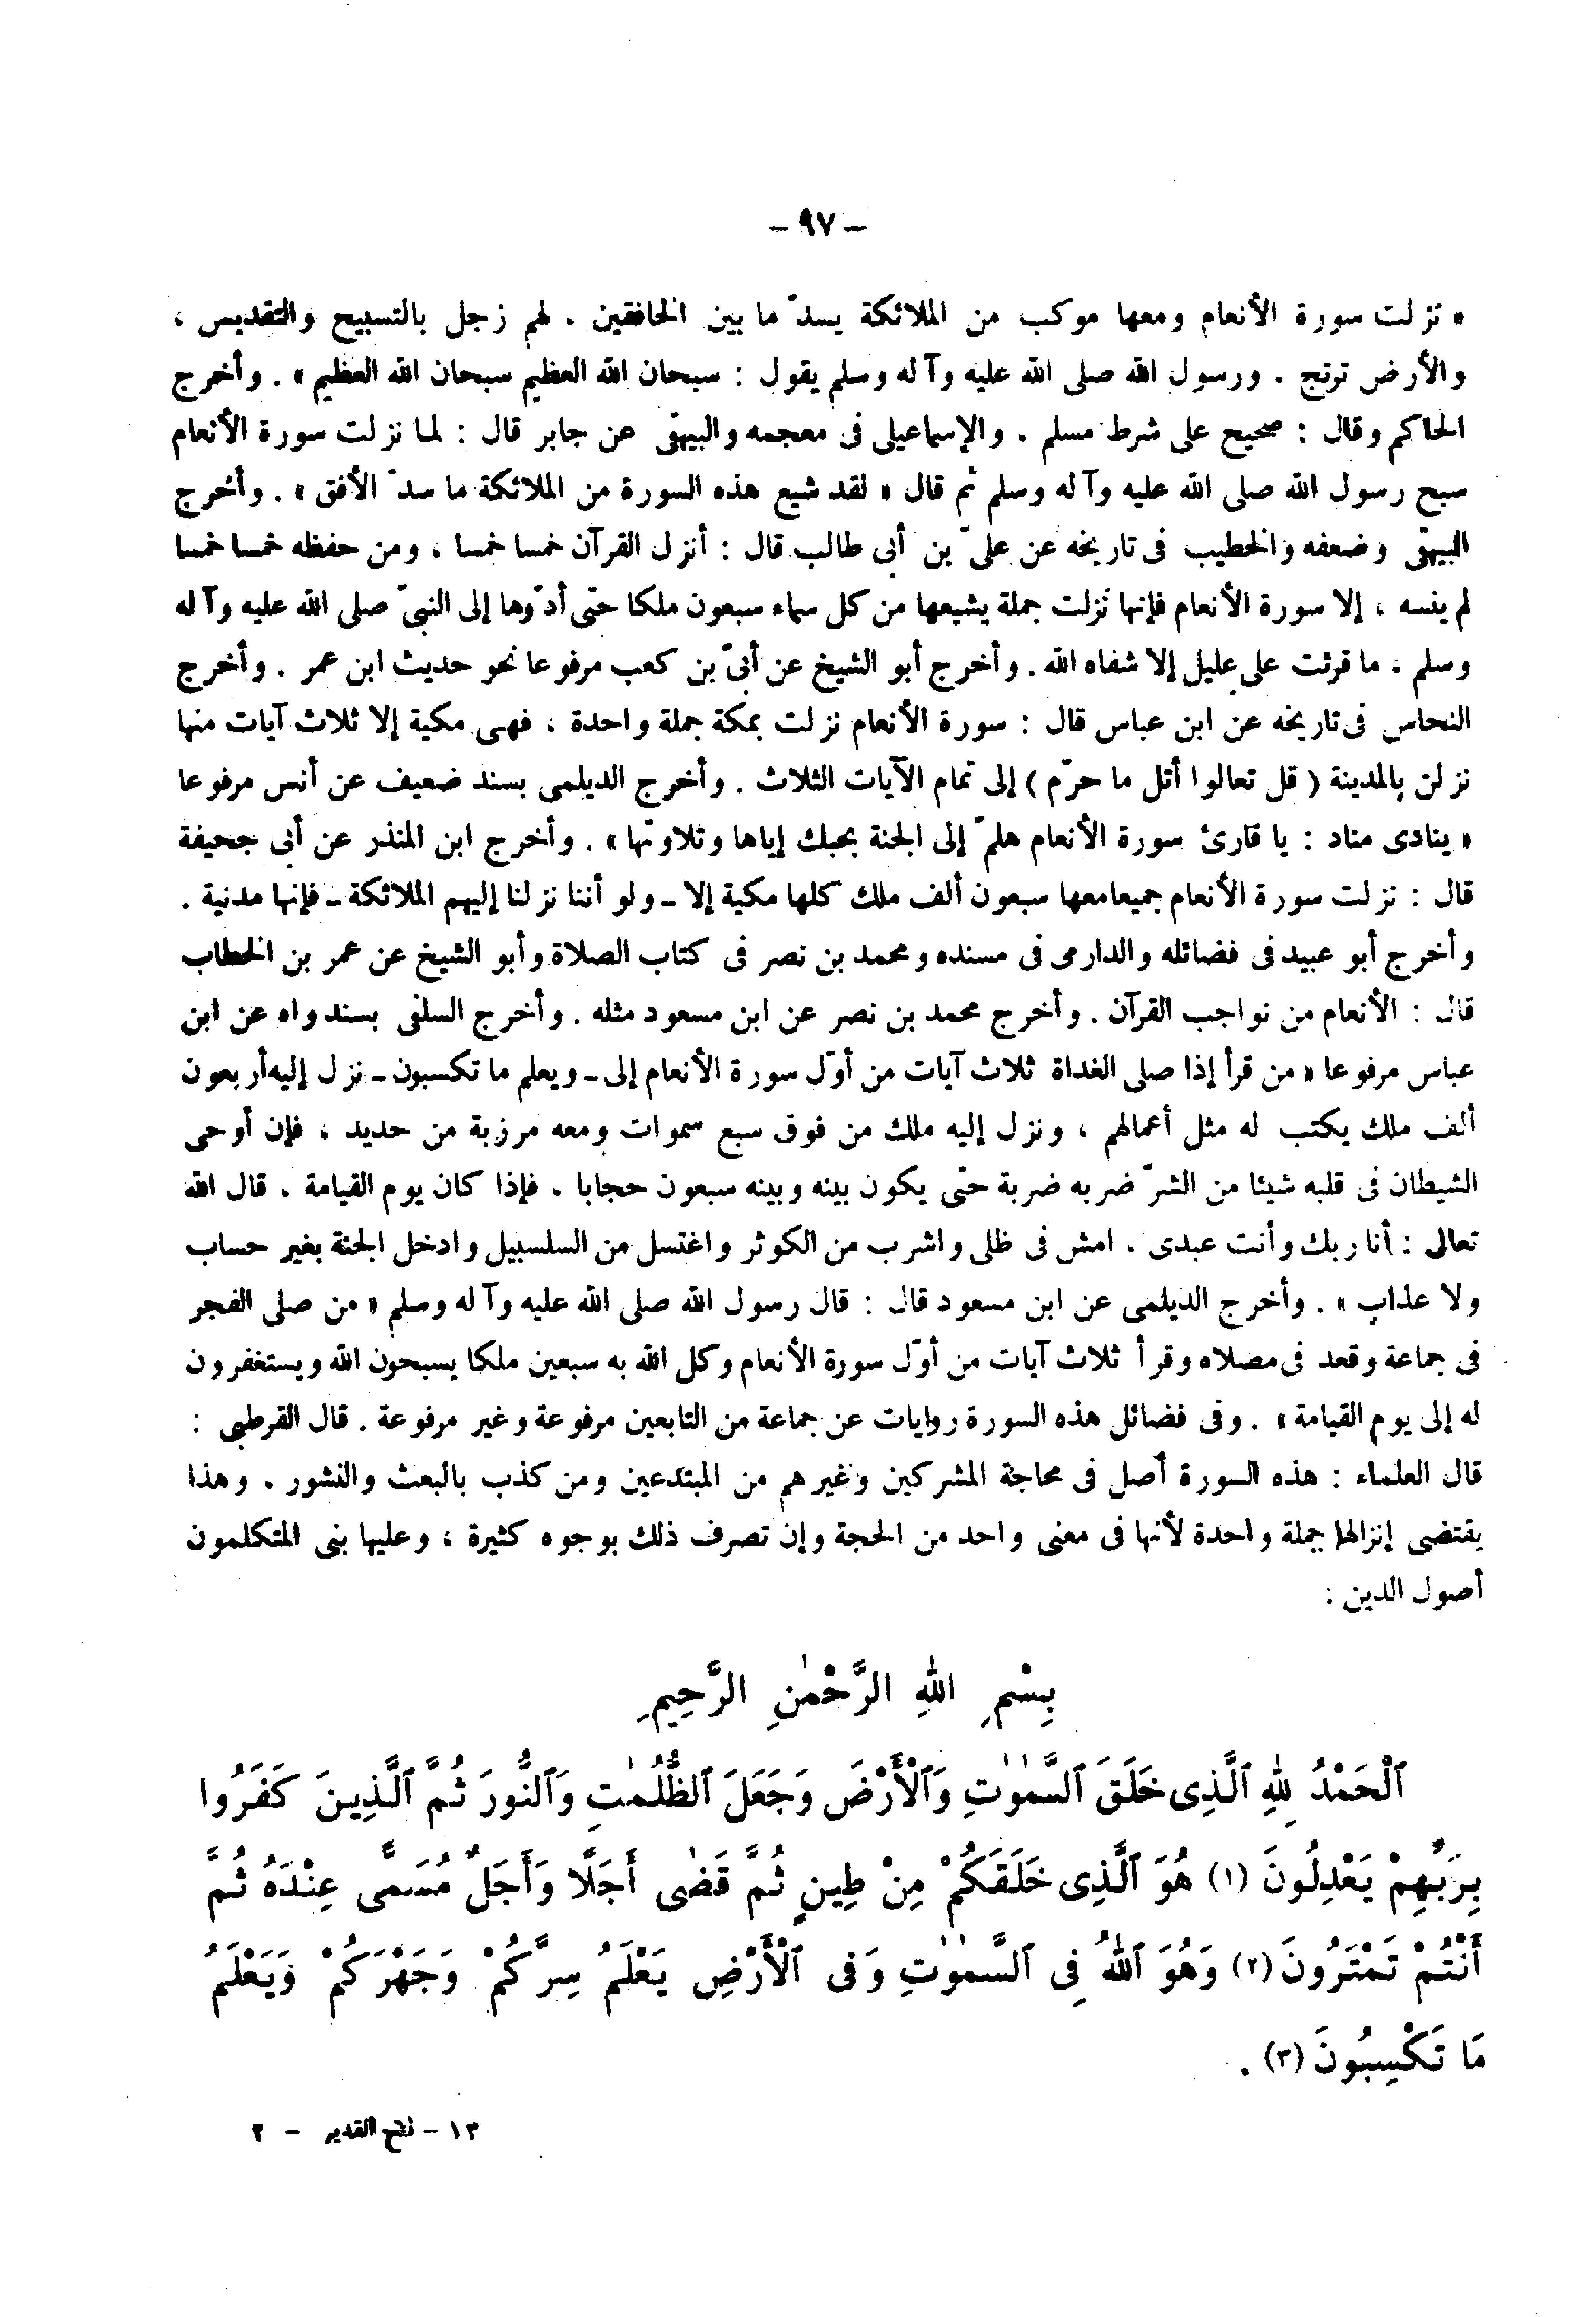 - ٩٧ -
« نزلت سورة الأنعام ومعها موكب من الملائكة يسدّ ما بين الخافقين . لهم زجل بالتسبيح والتقديس ،
والأرض ترتج . ورسول الله صلى الله عليه وآله وسلم يقول : سبحان الله العظيم سبحان الله العظيم » . وأخرج
الحاكم وقال : صحيح على شرط مسلم . والإسماعيلى فى معجمه والبيهقى عن جابر قال : لما نزلت سورة الأنعام
سبح رسول الله صلى الله عليه وآله وسلم ثم قال « لقد شيع هذه السورة من الملائكة ما سدّ الأفق » . وأخرج
البيهقى وضعفه والخطيب فى تاريخه عن علىّ بن أبى طالب قال : أنزل القرآن خمسا خمسا ، ومن حفظه خمسا خمسا
لم ينسه ، إلا سورة الأنعام فإنها نزلت جملة يشيعها من كل سماء سبعون ملكا حتى أدّوها إلى النبىّ صلى الله عليه وآله
وسلم ، ما قرئت على عليل إلا شفاه الله . وأخرج أبو الشيخ عن أبىّ بن كعب مرفوعا نحو حديث ابن عمر . وأخرج
النحاس فى تاريخه عن ابن عباس قال : سورة الأنعام نزلت بمكة جملة واحدة ، فهى مكية إلا ثلاث آيات منها
نزلن بالمدينة ( قل تعالوا أتل ما حرّم ) إلى تمام الآيات الثلاث . وأخرج الديلمى بسند ضعيف عن أنس مرفوعا
« ينادى مناد : يا قارئ سورة الأنعام هلمّ إلى الجنة بحبك إياها وتلاوتها » . وأخرج ابن المنذر عن أبى جحيفة
قال : نزلت سورة الأنعام جميعا معها سبعون ألف ملك كلها مكية إلا - ولو أننا نزلنا إليهم الملائكة - فإنها مدنية .
وأخرج أبو عبيد فى فضائله والدارمى فى مسنده ومحمد بن نصر فى كتاب الصلاة وأبو الشيخ عن عمر بن الخطاب
قال : الأنعام من نواجب القرآن . وأخرج محمد بن نصر عن ابن مسعود مثله . وأخرج السلفى بسند واه عن ابن
عباس مرفوعا « من قرأ إذا صلى الغداة ثلاث آيات من أوّل سورة الأنعام إلى - ويعلم ما تكسبون - نزل إليه أربعون
ألف ملك يكتب له مثل أعمالهم ، ونزل إليه ملك من فوق سبع سموات ومعه مرزبة من حديد ، فإن أوحى
الشيطان فى قلبه شيئا من الشرّ ضربه ضربة حتى يكون بينه وبينه سبعون حجابا . فإذا كان يوم القيامة . قال الله
تعالى : أنا ربك وأنت عبدى . امش فى ظلى واشرب من الكوثر واغتسل من السلسبيل وادخل الجنة بغير حساب
ولا عذاب » . وأخرج الديلمى عن ابن مسعود قال : قال رسول الله صلى الله عليه وآله وسلم « من صلى الفجر
فى جماعة وقعد فى مصلاه وقرأ ثلاث آيات من أوّل سورة الأنعام وكل الله به سبعين ملكا يسبحون الله ويستغفرون
له إلى يوم القيامة » . وفى فضائل هذه السورة روايات عن جماعة من التابعين مرفوعة وغير مرفوعة . قال القرطبى :
قال العلماء : هذه السورة أصل فى محاجة المشركين وغيرهم من المبتدعين ومن كذب بالبعث والنشور . وهذا
يقتضى إنزالها جملة واحدة لأنها فى معنى واحد من الحجة وإن تصرف ذلك بوجوه كثيرة ، وعليها بنى المتكلمون
أصول الدين :
بِسْمِ اللهِ الرَّحْمٰنِ الرَّحِيمِ
ٱلْحَمْدُ لِلّٰهِ ٱلَّذِى خَلَقَ ٱلسَّمٰوٰتِ وَٱلْأَرْضَ وَجَعَلَ ٱلظُّلُمٰتِ وَٱلنُّورَ ثُمَّ ٱلَّذِينَ كَفَرُوا
بِرَبِّهِمْ يَعْدِلُونَ (١) هُوَ ٱلَّذِى خَلَقَكُمْ مِنْ طِينٍ ثُمَّ قَضٰى أَجَلًا وَأَجَلٌ مُسَمًّى عِنْدَهُ ثُمَّ
أَنْتُمْ تَمْتَرُونَ (٢) وَهُوَ ٱللّٰهُ فِى ٱلسَّمٰوٰتِ وَفِى ٱلْأَرْضِ يَعْلَمُ سِرَّكُمْ وَجَهْرَكُمْ وَيَعْلَمُ
مَا تَكْسِبُونَ (٣) .
١٣ - فتح القدير - ٢